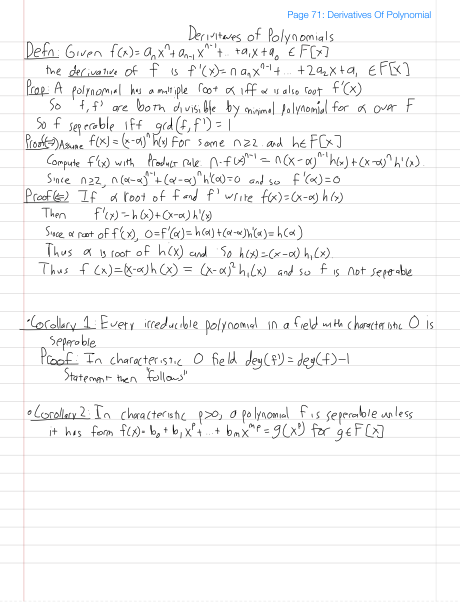 Page 71: Derivatives Of Polynomial
Derivitaves of Polynomials
Defn: Given f(x) = aₙxⁿ + aₙ₋₁xⁿ⁻¹ + ... + a₁x + a₀ ∈ F[x]
the derivative of f is f'(x) = n aₙxⁿ⁻¹ + ... + 2a₂x + a₁ ∈ F[x]
Prop: A polynomial has a multiple root α iff α is also root f'(x)
So f, f' are both divisible by minimal polynomial for α over F
So f seperable iff gcd(f, f') = 1
Proof(⇒) Assume f(x) = (x-α)ⁿ h(x) for some n≥2 and h∈F[x]
Compute f'(x) with Product rule n·f(x)ⁿ⁻¹ = n(x-α)ⁿ⁻¹h(x) + (x-α)ⁿh'(x)
Since n≥2, n(α-α)ⁿ⁻¹ + (α-α)ⁿh'(α) = 0 and so f'(α) = 0
Proof(⇐) If α root of f and f' write f(x) = (x-α) h(x)
Then f'(x) = h(x) + (x-α) h'(x)
Since α root of f'(x), 0 = f'(α) = h(α) + (α-α)h'(α) = h(α)
Thus α is root of h(x) and so h(x) = (x-α) h₁(x)
Thus f(x) = (x-α)h(x) = (x-α)² h₁(x) and so f is not seperable
• Corollary 1: Every irreducible polynomial in a field with characteristic 0 is
seperable
Proof: In characteristic 0 field deg(f') = deg(f)-1
Statement then "follows"
• Corollary 2: In characteristic p>0, a polynomial f is seperable unless
it has form f(x) = b₀ + b₁xᵖ + ... + bₘxᵐᵖ = g(xᵖ) for g∈F[x]